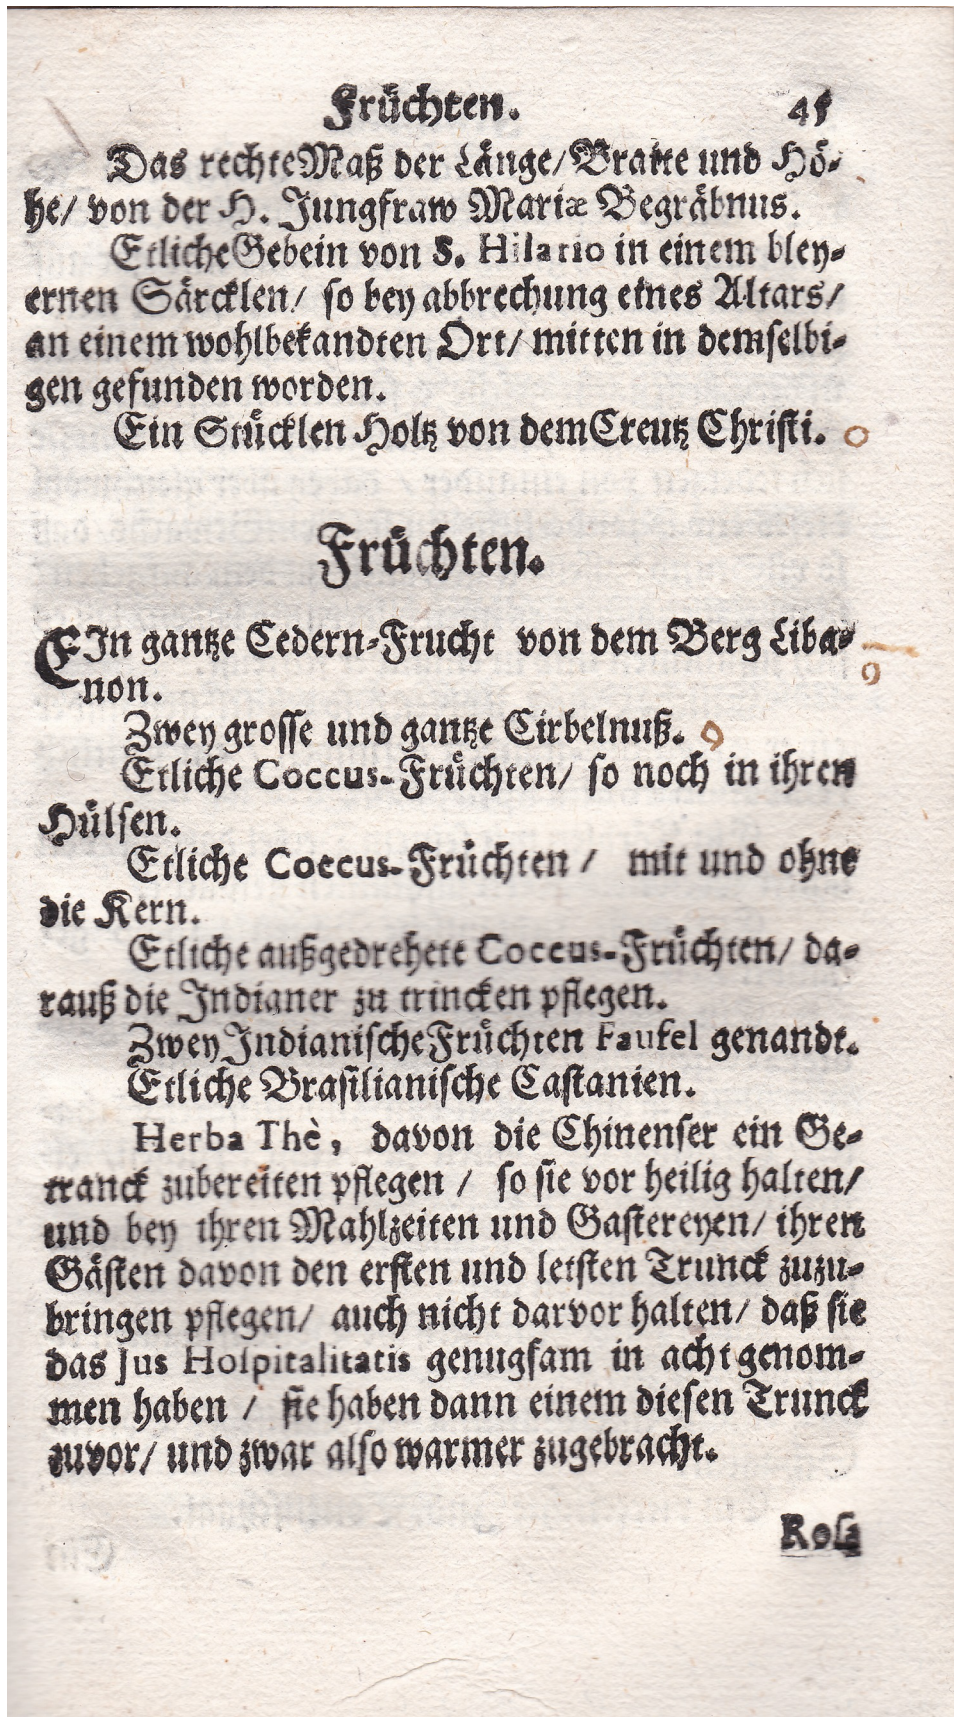 Früchten. 45
Das rechte Maß der Länge/ Braite und Hö-
he/ von der H. Jungfraw Mariæ Begräbnus.
Etliche Gebein von S. Hilario in einem bley-
ernen Särcklen/ so bey abbrechung eines Altars/
an einem wohlbekandten Ort/ mitten in demselbi-
gen gefunden worden.
Ein Stücklen Holtz von dem Creutz Christi.
Früchten.
EIn gantze Cedern-Frucht von dem Berg Liba-
non.
Zwey grosse und gantze Cirbelnuß.
Etliche Coccus-Früchten/ so noch in ihren
Hülsen.
Etliche Coccus-Früchten / mit und ohne
die Kern.
Etliche außgedrehete Coccus-Früchten/ da-
rauß die Indianer zu trincken pflegen.
Zwey Indianische Früchten Faufel genandt.
Etliche Brasilianische Castanien.
Herba Thè, davon die Chinenser ein Ge-
tranck zubereiten pflegen / so sie vor heilig halten/
und bey ihren Mahlzeiten und Gastereyen/ ihren
Gästen davon den ersten und letsten Trunck zuzu-
bringen pflegen/ auch nicht darvor halten/ daß sie
das Jus Hospitalitatis genugsam in acht genom-
men haben / sie haben dann einem diesen Trunck
zuvor/ und zwar also warmer zugebracht.
Rosa